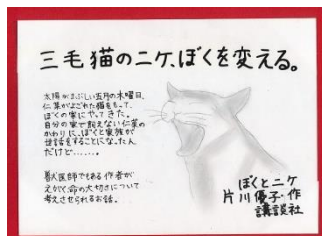 三毛猫のニケ、ぼくを変える。
太陽がまぶしい五月の木曜日、
仁菜がよごれた猫をもって、
ぼくの家にやってきた。
自分の家で飼えない仁菜の
かわりに、ぼくと家族が
世話をすることになったん
だけど……。
獣医師でもある作者が
えがく、命の大切さについて
考えさせられるお話。
ぼくとニケ
片川優子・作
講談社